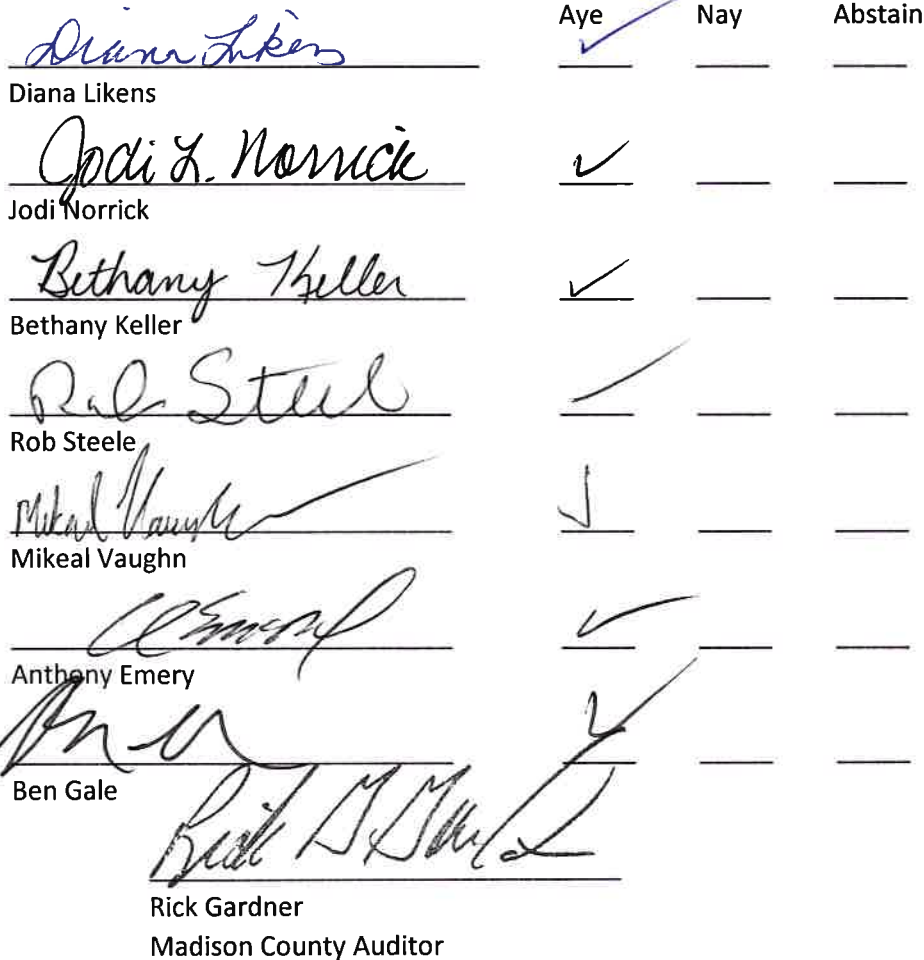 Aye Nay Abstain
Diana Likens
Diana Likens
Jodi L. Norrick
Jodi Norrick
Bethany Keller
Bethany Keller
Rob Steele
Rob Steele
Mikeal Vaughn
Mikeal Vaughn
Anthony Emery
Ben Gale
Rick G. Gardner
Rick Gardner
Madison County Auditor